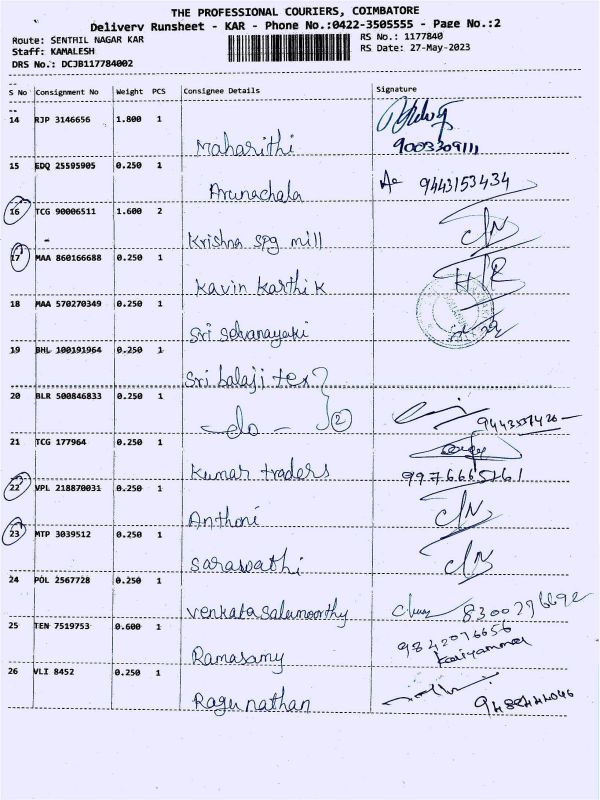 THE PROFESSIONAL COURIERS, COIMBATORE
Delivery Runsheet - KAR - Phone No.:0422-3505555 - Page No.:2
Route: SENTHIL NAGAR KAR
RS No.: 1177840
Staff: KAMALESH
RS Date: 27-May-2023
DRS No.: DCJB117784002
S No Consignment No Weight PCS Consignee Details Signature
14 RJP 3146656 1.800 1
Maharithi 9003309111
15 EDQ 25595905 0.250 1
Arunachala 9443153434
16 TCG 90006511 1.600 2
Krishna spg mill C/N
17 MAA 860166688 0.250 1
Kavin Karthik H/R
18 MAA 570270349 0.250 1
Sri Selvanayaki
19 BHL 100191964 0.250 1
Sri balaji tex
20 BLR 500846833 0.250 1
-do- 2
21 TCG 177964 0.250 1
Kumar traders
22 VPL 218870031 0.250 1
Anthoni C/N
23 MTP 3039512 0.250 1
Saraswathi C/N
24 POL 2567728 0.250 1
Venkatasalamoorthy 8300796692
25 TEN 7519753 0.600 1
9842076656
Ramasamy Kariyammal
26 VLI 8452 0.250 1
Ragunathan